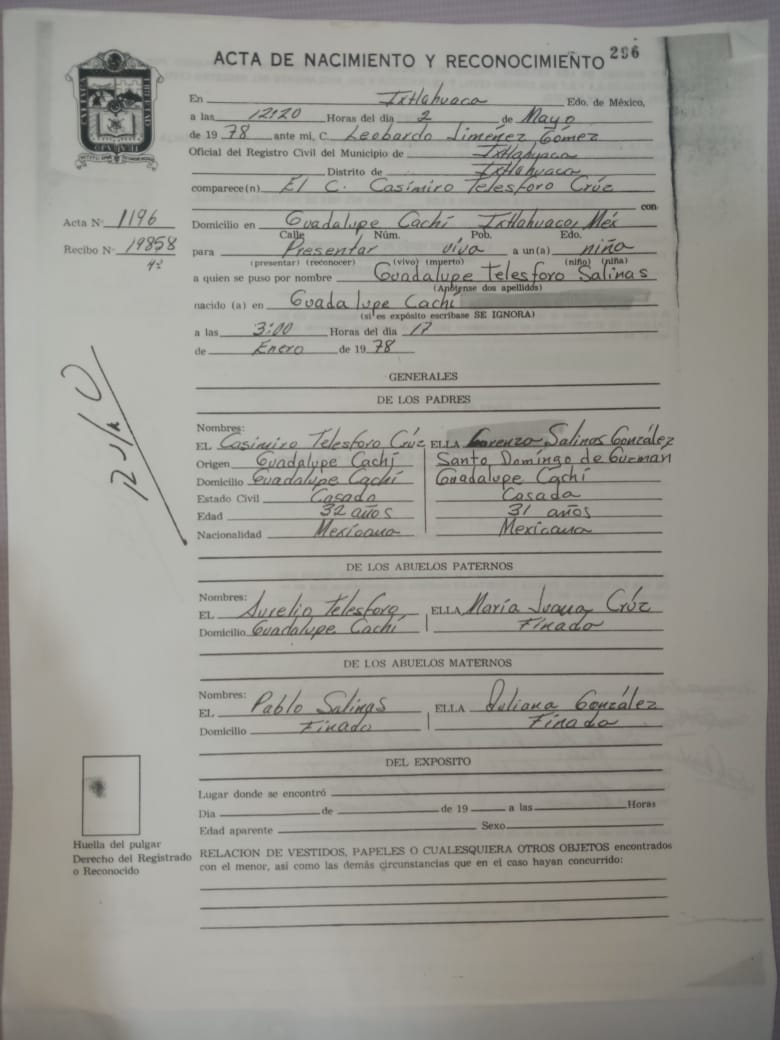 ACTA DE NACIMIENTO Y RECONOCIMIENTO 296
En Ixtlahuaca Edo. de México,
a las 12:20 Horas del dia 2 de Mayo
de 1978 ante mi, C. Leobardo Jiménez Gómez
Oficial del Registro Civil del Municipio de Ixtlahuaca
Distrito de Ixtlahuaca
comparece(n) El C. Casimiro Telesforo Crúz
con
Acta Nº 1196
Recibo Nº 19858
Domicilio en Guadalupe Cachí Ixtlahuaca, Méx
Calle Núm. Pob. Edo.
para Presentar viva a un(a) niña
(presentar) (reconocer) (vivo) (muerto) (niño) (niña)
a quien se puso por nombre Guadalupe Telesforo Salinas
(Anótense dos apellidos)
nacido (a) en Guadalupe Cachí
(si es expósito escríbase SE IGNORA)
a las 3:00 Horas del dia 17
de Enero de 1978
GENERALES
DE LOS PADRES
Nombres:
EL Casimiro Telesforo Crúz ELLA Lorenza Salinas González
Origen Guadalupe Cachí Santo Domingo de Guzman
Domicilio Guadalupe Cachí Guadalupe Cachí
Estado Civil Casado Casada
Edad 32 años 31 años
Nacionalidad Mexicana Mexicana
DE LOS ABUELOS PATERNOS
Nombres:
EL Aurelio Telesforo ELLA María Juana Crúz
Domicilio Guadalupe Cachí Finada
DE LOS ABUELOS MATERNOS
Nombres:
EL Pablo Salinas ELLA Juliana González
Domicilio Finado Finada
DEL EXPOSITO
Lugar donde se encontró
Dia de de 19 a las Horas
Edad aparente Sexo
Huella del pulgar
Derecho del Registrado
o Reconocido
RELACION DE VESTIDOS, PAPELES O CUALESQUIERA OTROS OBJETOS encontrados
con el menor, asi como las demás circunstancias que en el caso hayan concurrido: